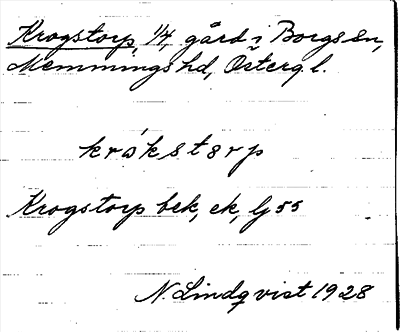 Krogstorp 1/4, gård i Borgs sn,
Memmings hd, Österg. l.
kråkstørp
Krogstorp bek, ek, lj 55
N. Lindqvist 1928